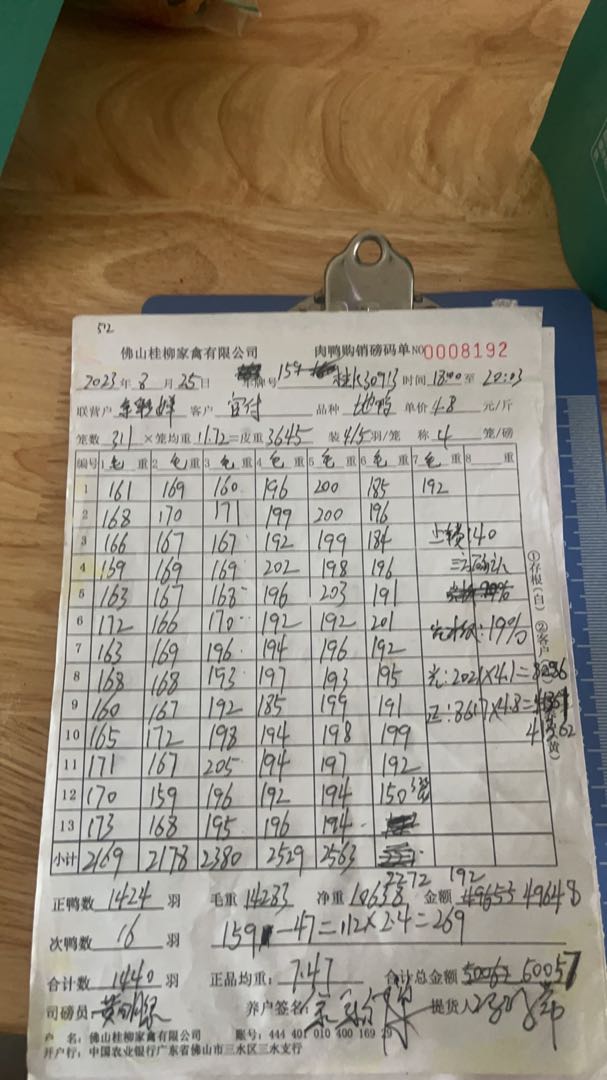 512
佛山桂柳家禽有限公司 肉鸭购销磅码单 NO 0008192
2023年 8月 25日 车牌号 159 桂K30913 时间 18:00 至 20:03
联营户 客户 宜付 品种 地鸭 单价 4.8 元/斤
笼数 311 ×笼均重 11.72 =皮重 3645 装 4/5 羽/笼 称 4 笼/磅
编号 1 毛 重 2 毛 重 3 毛 重 4 毛 重 5 毛 重 6 毛 重 7 毛 重 8 重
1 161 169 160 196 200 185 192
2 168 170 171 199 200 196
3 166 167 167 192 199 184 140
4 159 169 169 202 198 196
5 163 167 168 196 203 191
6 172 166 170 192 192 201 19%
7 163 169 196 194 196 192
8 168 168 193 197 193 195 光:2021×4.1=8286
9 160 167 192 185 199 191 正:8617×4.8=41361
10 165 172 198 194 198 199 41362
11 171 167 205 194 197 192
12 170 159 196 192 194 150
13 173 168 195 196 194
小计 2169 2178 2380 2529 2563 2272 192
①存根(白) ②客户(黄)
正鸭数 1424 羽 毛重 14283 净重 10638 金额 49653 49648
次鸭数 16 羽 159-47=112×2.4=269
合计数 1440 羽 正品均重: 7.47 合计总金额 50057
司磅员 养户签名: 提货人
户 名: 佛山桂柳家禽有限公司 账号: 444 401 010 400 169 29
开户行: 中国农业银行广东省佛山市三水区三水支行